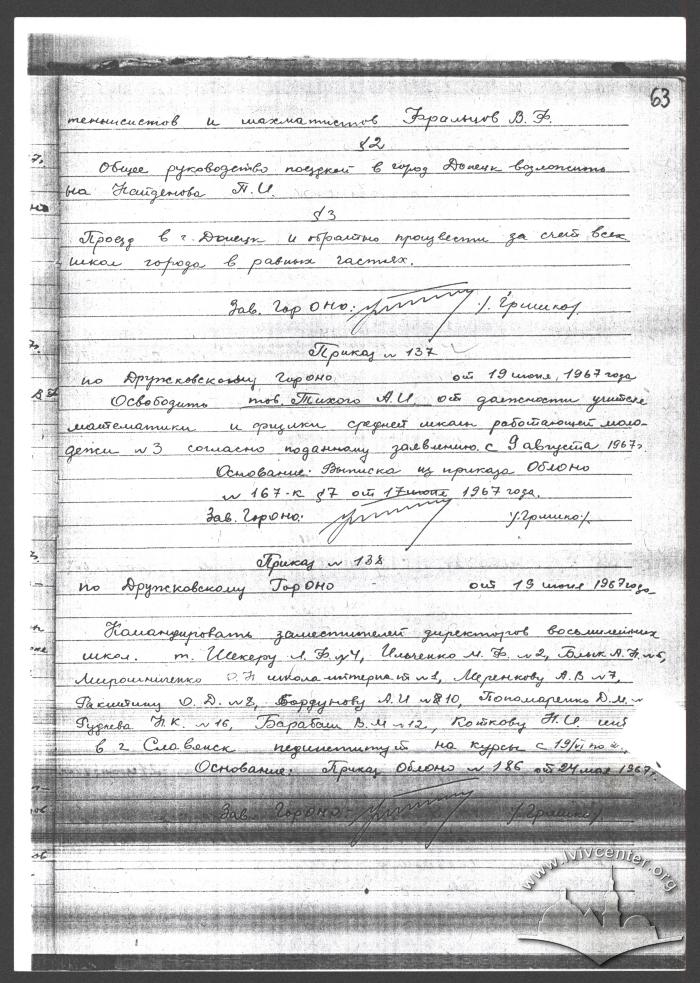 63
теннисистов и шахматистов Фральцов В. Ф.
§2
Общее руководство поездкой в город Донецк возложить
на Найденова П. И.
§3
Проезд в г. Донецк и обратно произвести за счет всех
школ города в равных частях.
Зав. ГорОНО: /. Гришко/.
Приказ № 137
по Дружковскому Гороно от 19 июня, 1967 года
Освободить тов. Тихого А.И. от должности учителя
математики и физики средней школы работающей моло-
дежи №3 согласно поданному заявлению с 9 августа 1967г.
Основание: Выписка из приказа Облоно
№ 167-к §7 от 17 июня 1967 года.
Зав. ГорОно: /.Гришко/.
Приказ № 138
по Дружковскому ГорОно от 19 июня 1967 года
Командировать заместителей директоров восьмилетних
школ. т. Шекеру Л. Ф. №4, Ильченко М. Ф. №2, Блык А.Н. №6,
Мирошниченко школа интернат №1, Меренкову А. В №7,
Ракитину О. Д. №8, Бордунову А. И №10, Пономаренко Д.М.
Руднева Н.К. №16, Барабаш В. М №12, Коткову Н.И.
в г Славянск пединститут на курсы с 19/VI по
Основание: Приказ Облоно № 186 от 24 мая 1967г.
Зав. ГорОно: /.Гришко/.
www.lvivcenter.org